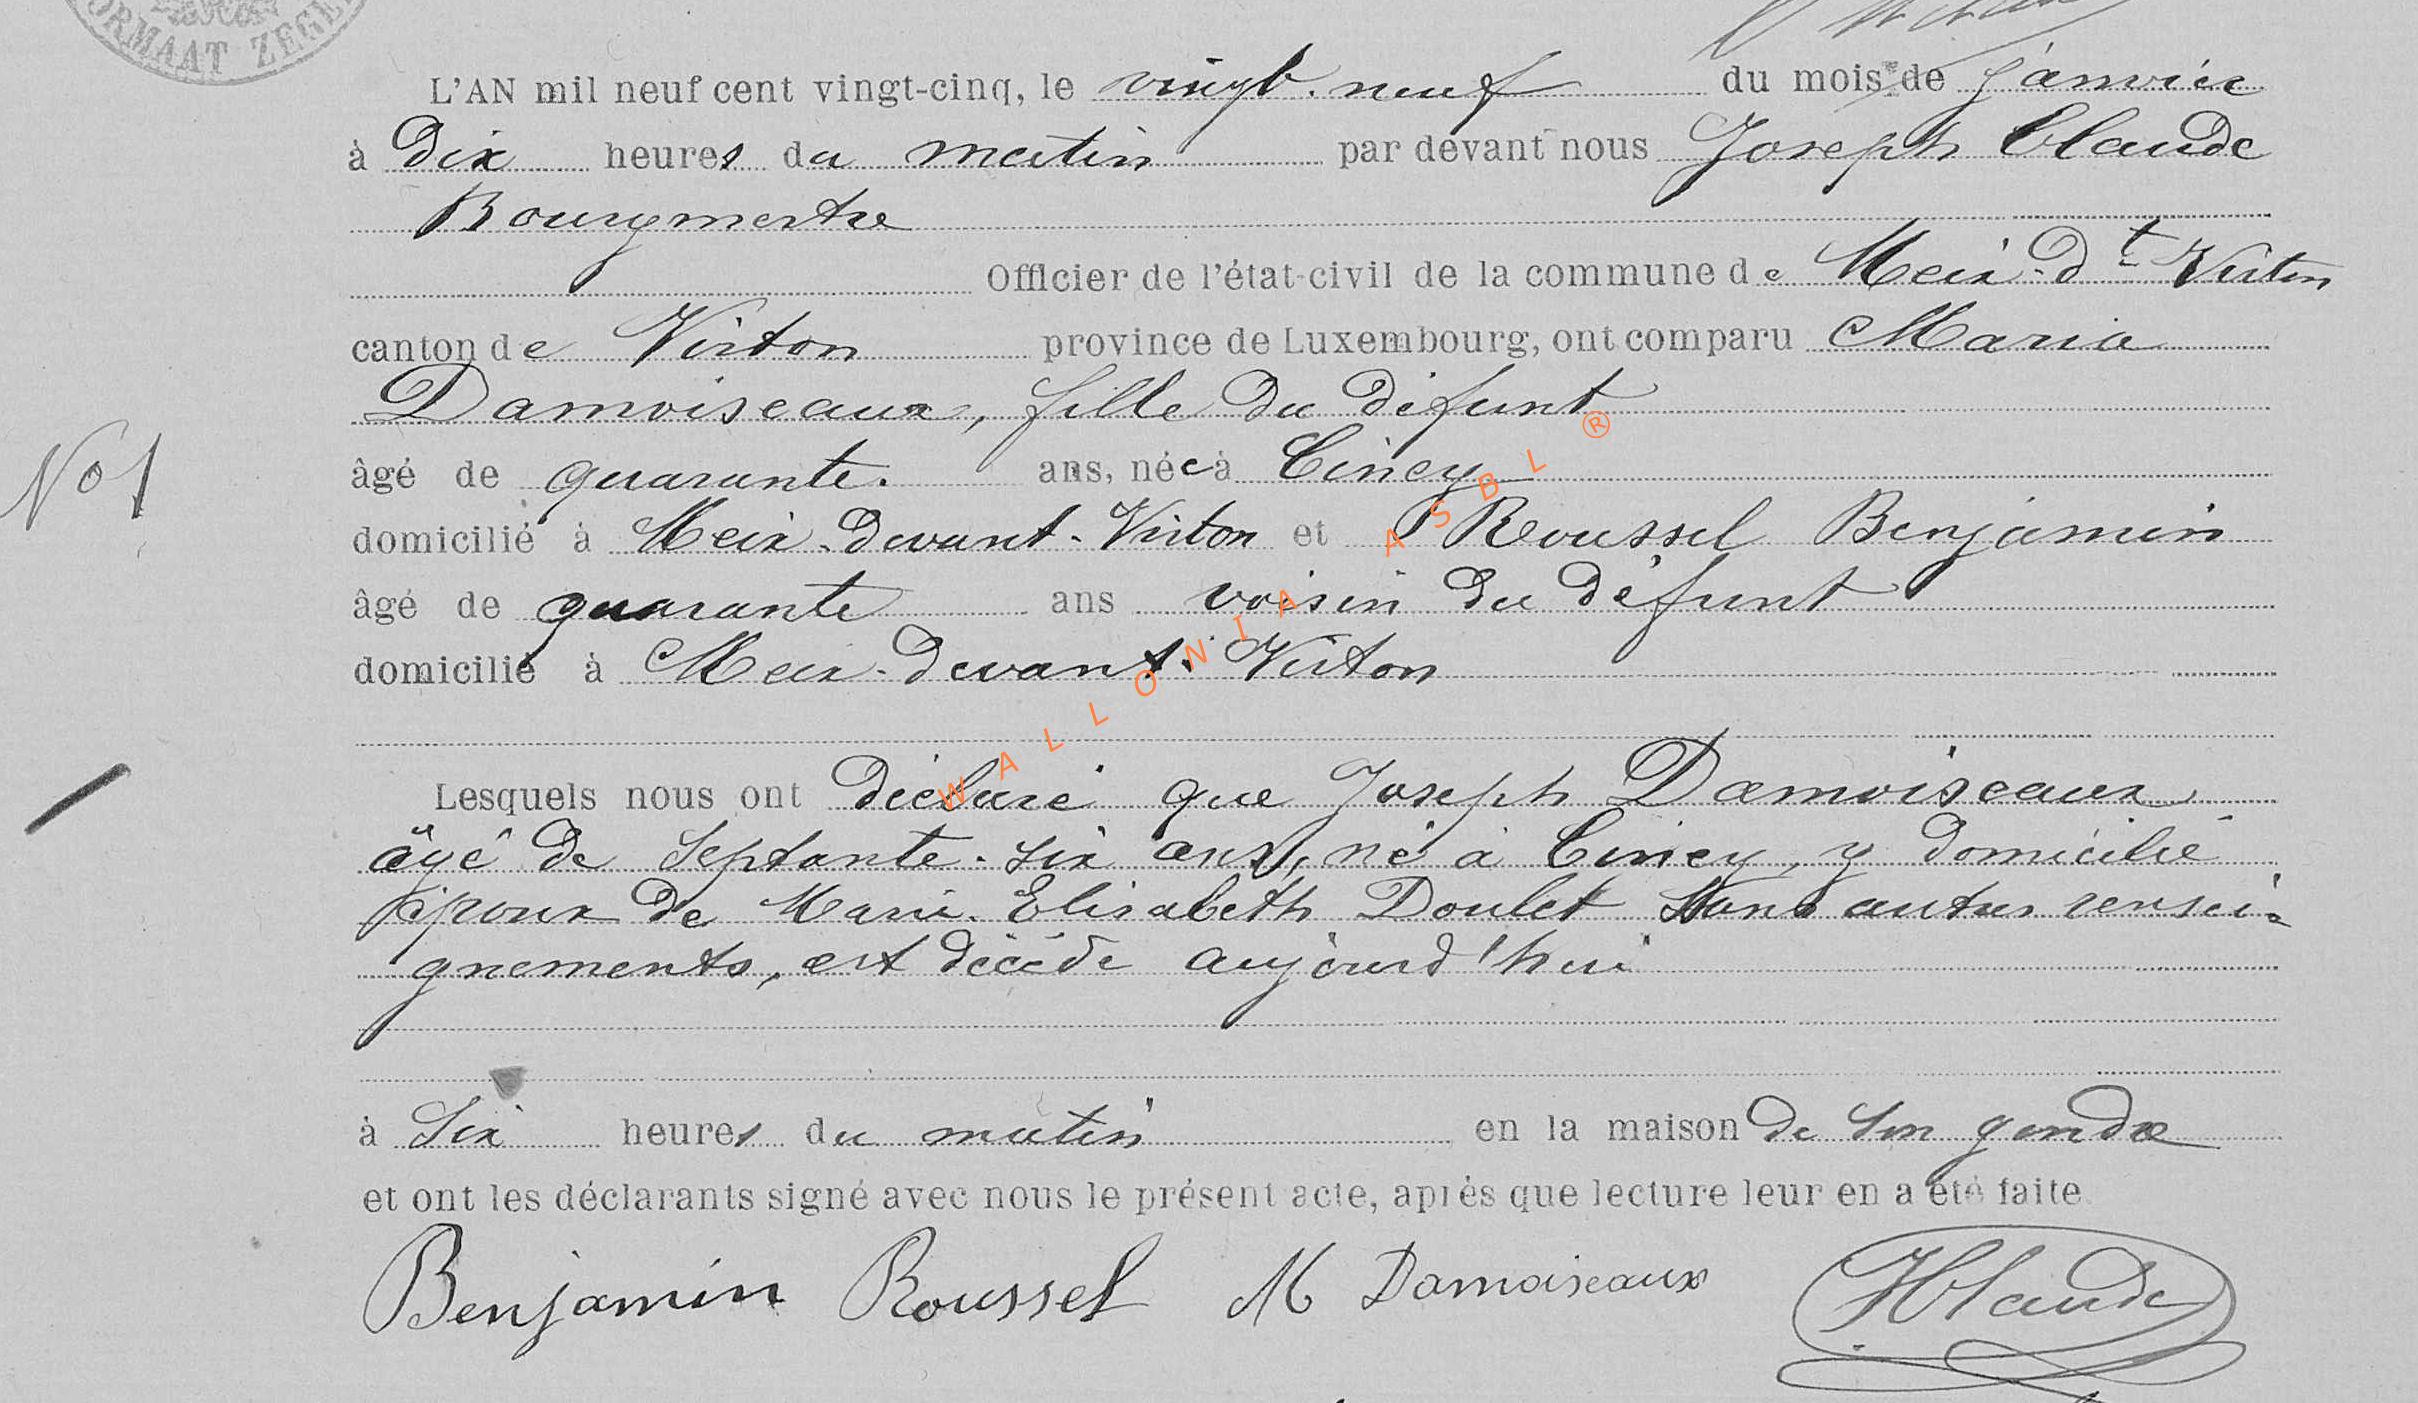 ORMAAT ZEGEL
L'AN mil neuf cent vingt-cinq, le vingt-neuf du mois de janvier
à Dix heures du matin par devant nous Joseph Claude
Bourgmestre
Officier de l'état-civil de la commune de Meix-dt Virton
canton de Virton province de Luxembourg, ont comparu Maria
Damoiseaux, fille du défunt
âgé de quarante. ans, née à Ciney
No 1
domicilié à Meix-devant-Virton et Roussel Benjamin
âgé de quarante ans voisin du défunt
domicilié à Meix-devant-Virton
WALLONIA ASBL ®
Lesquels nous ont déclaré que Joseph Damoiseaux
âgé de septante-six ans, né à Ciney, y domicilié
époux de Marie-Elisabeth Doulet sans autres rensei-
gnements, est décédé aujourd'hui
à six heures du matin en la maison de son gendre
et ont les déclarants signé avec nous le présent acte, après que lecture leur en a été faite
Benjamin Roussel M Damoiseaux JClaude